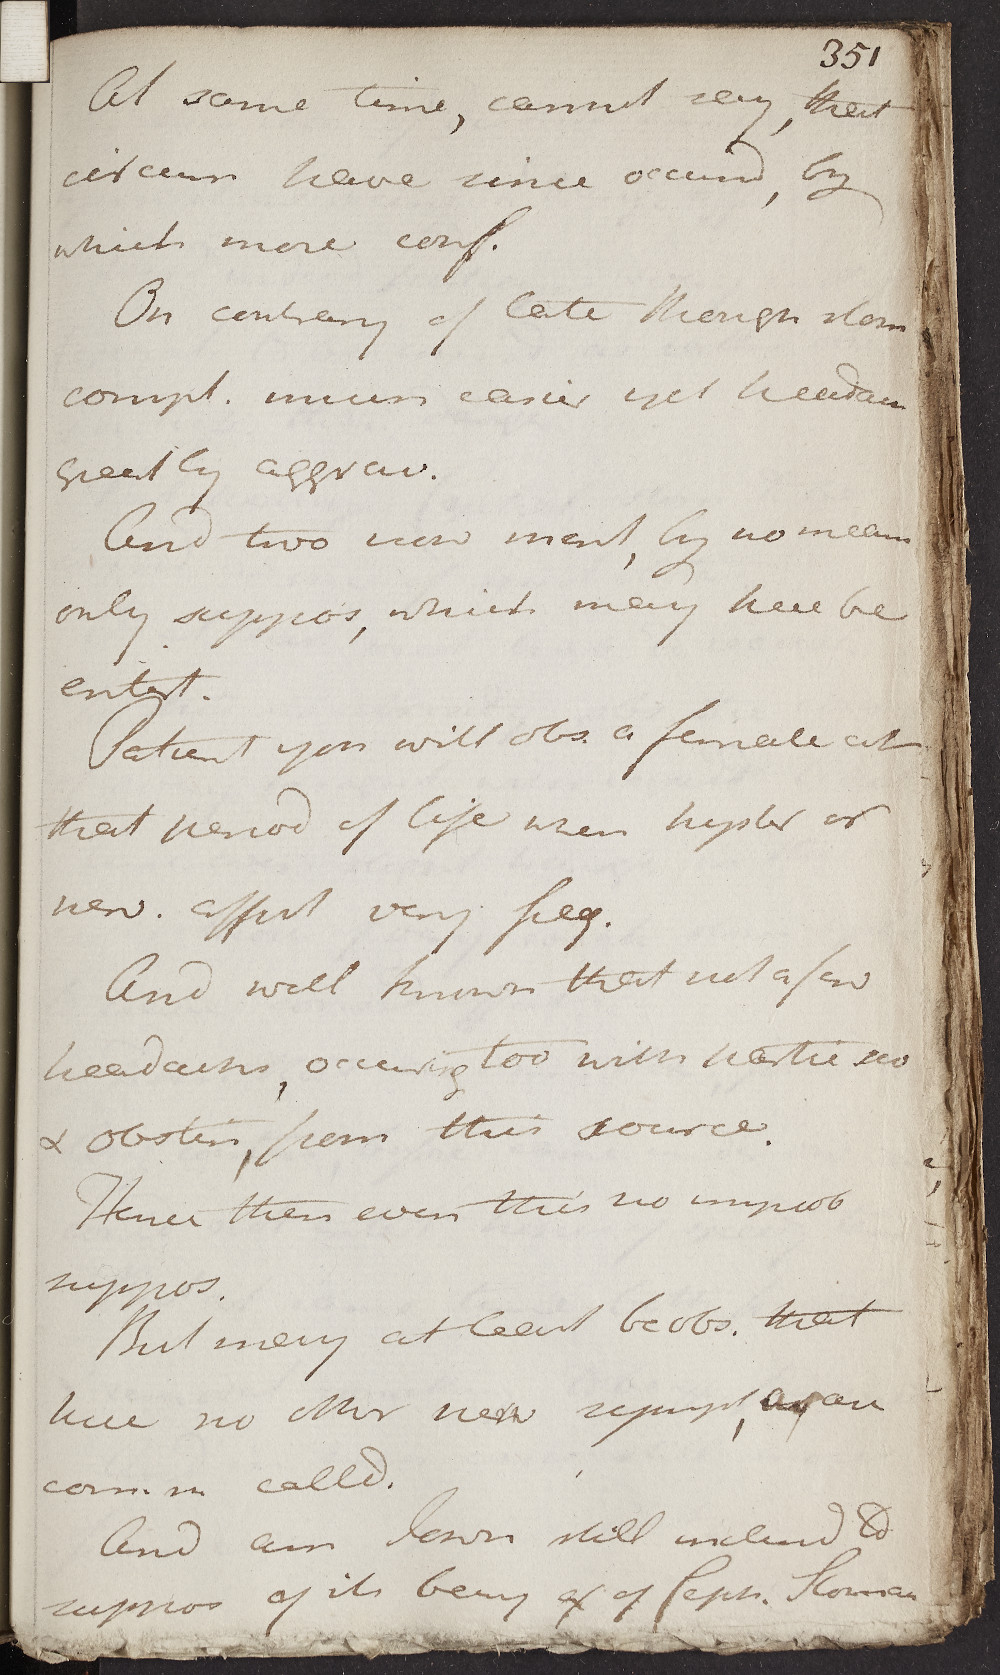 351
At same time, cannot say, that
circum have since occurrd, by
which more conf.
On contrary of late though stom
compl. much easier yet headach
greatly aggrav.
And two now ment, by no means
only suppos, which may here be
entert.
Patient you will obs. a female at
that period of life when hyster or
nerv. affect very freq.
And well known that not a few
headachs, occurring too with partic
& obstin, from this source.
Hence then even this no improb
suppos.
But may at least be obs. that
here no other nerv sympt, as are
comm calld.
And am I own still inclind to
suppos of its being of Ceph. Stomac